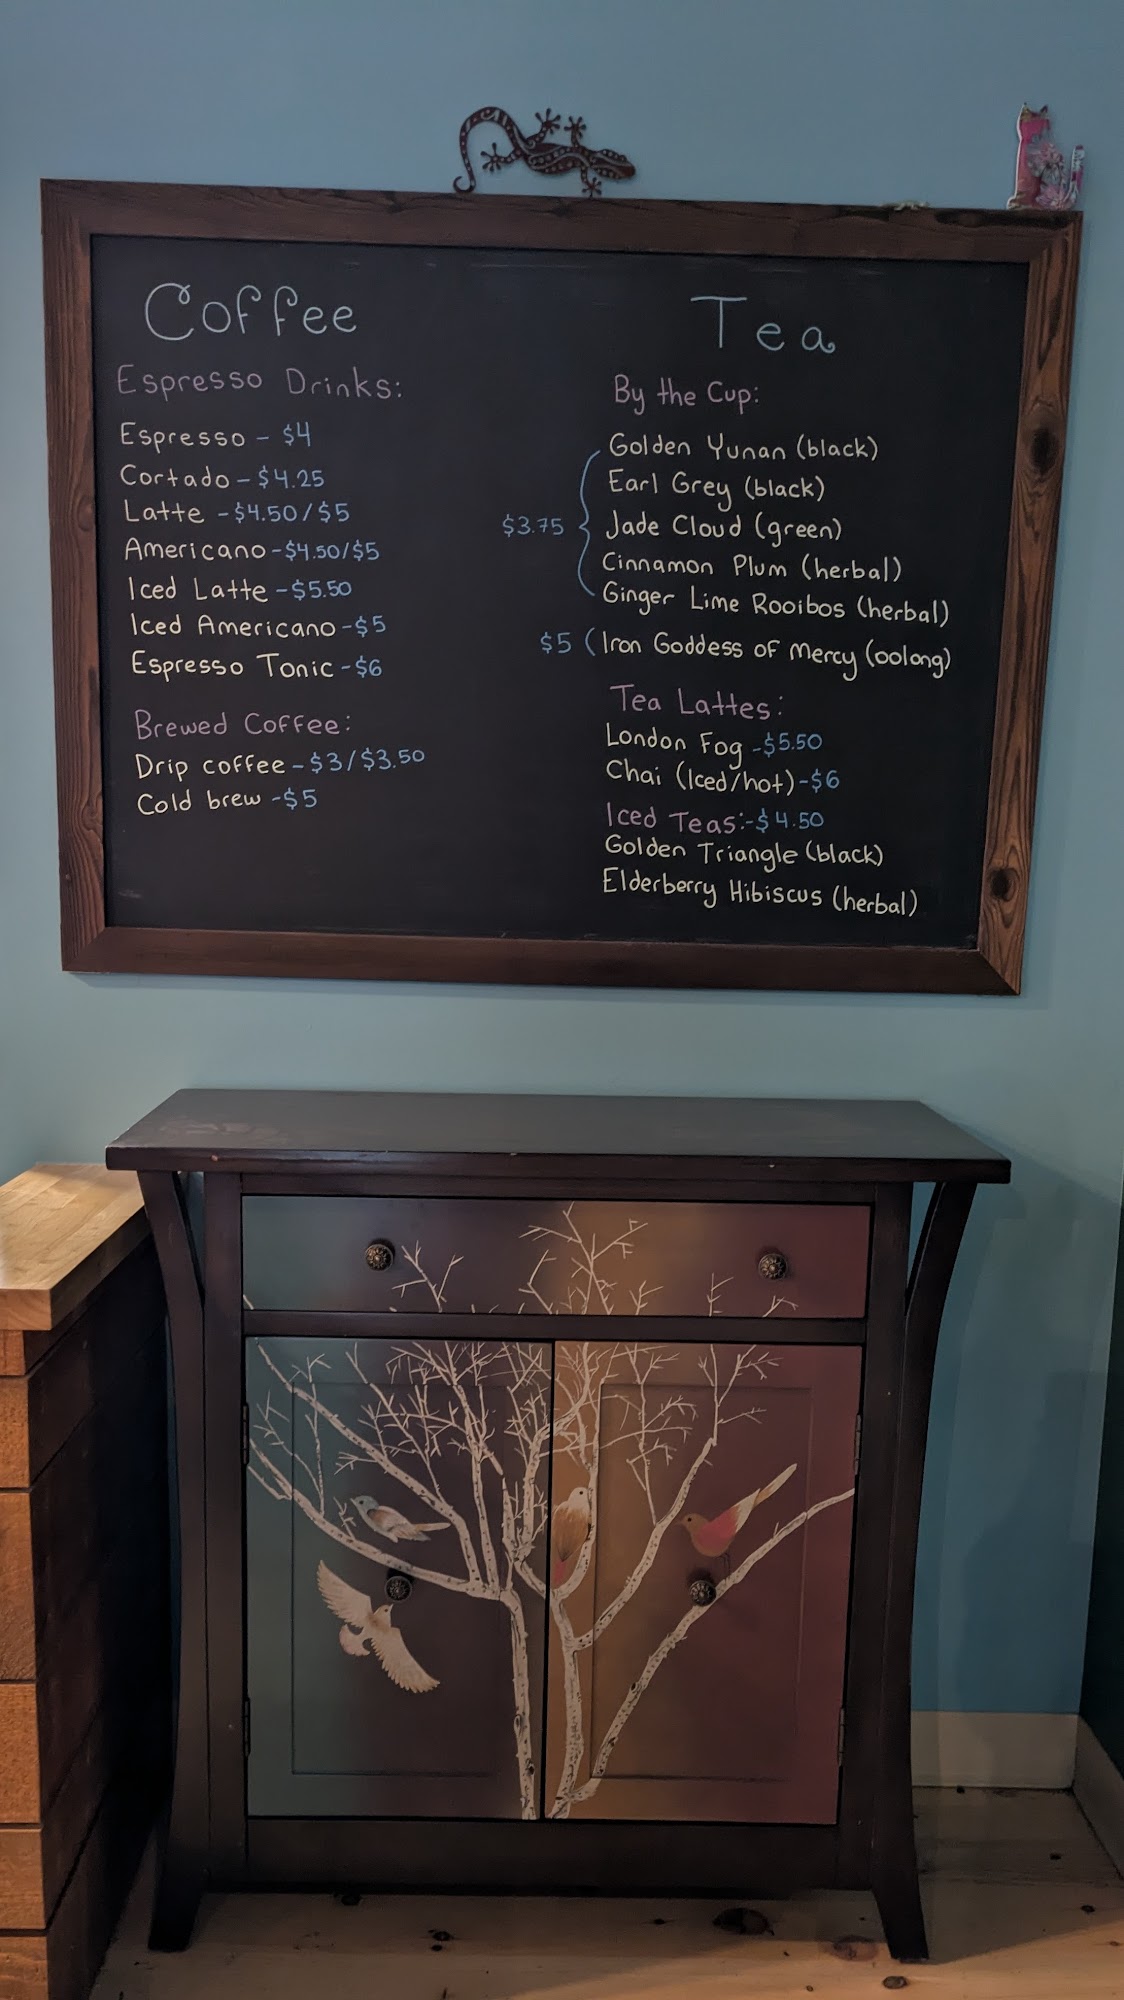 Coffee
Espresso Drinks:
Espresso - $4
Cortado - $4.25
Latte - $4.50/$5
Americano - $4.50/$5
Iced Latte - $5.50
Iced Americano - $5
Espresso Tonic - $6
Brewed Coffee:
Drip coffee - $3/$3.50
Cold brew - $5
Tea
By the Cup:
Golden Yunan (black)
Earl Grey (black)
$3.75 { Jade Cloud (green)
Cinnamon Plum (herbal)
Ginger Lime Rooibos (herbal)
$5 ( Iron Goddess of Mercy (oolong)
Tea Lattes:
London Fog - $5.50
Chai (Iced/hot) - $6
Iced Teas: - $4.50
Golden Triangle (black)
Elderberry Hibiscus (herbal)